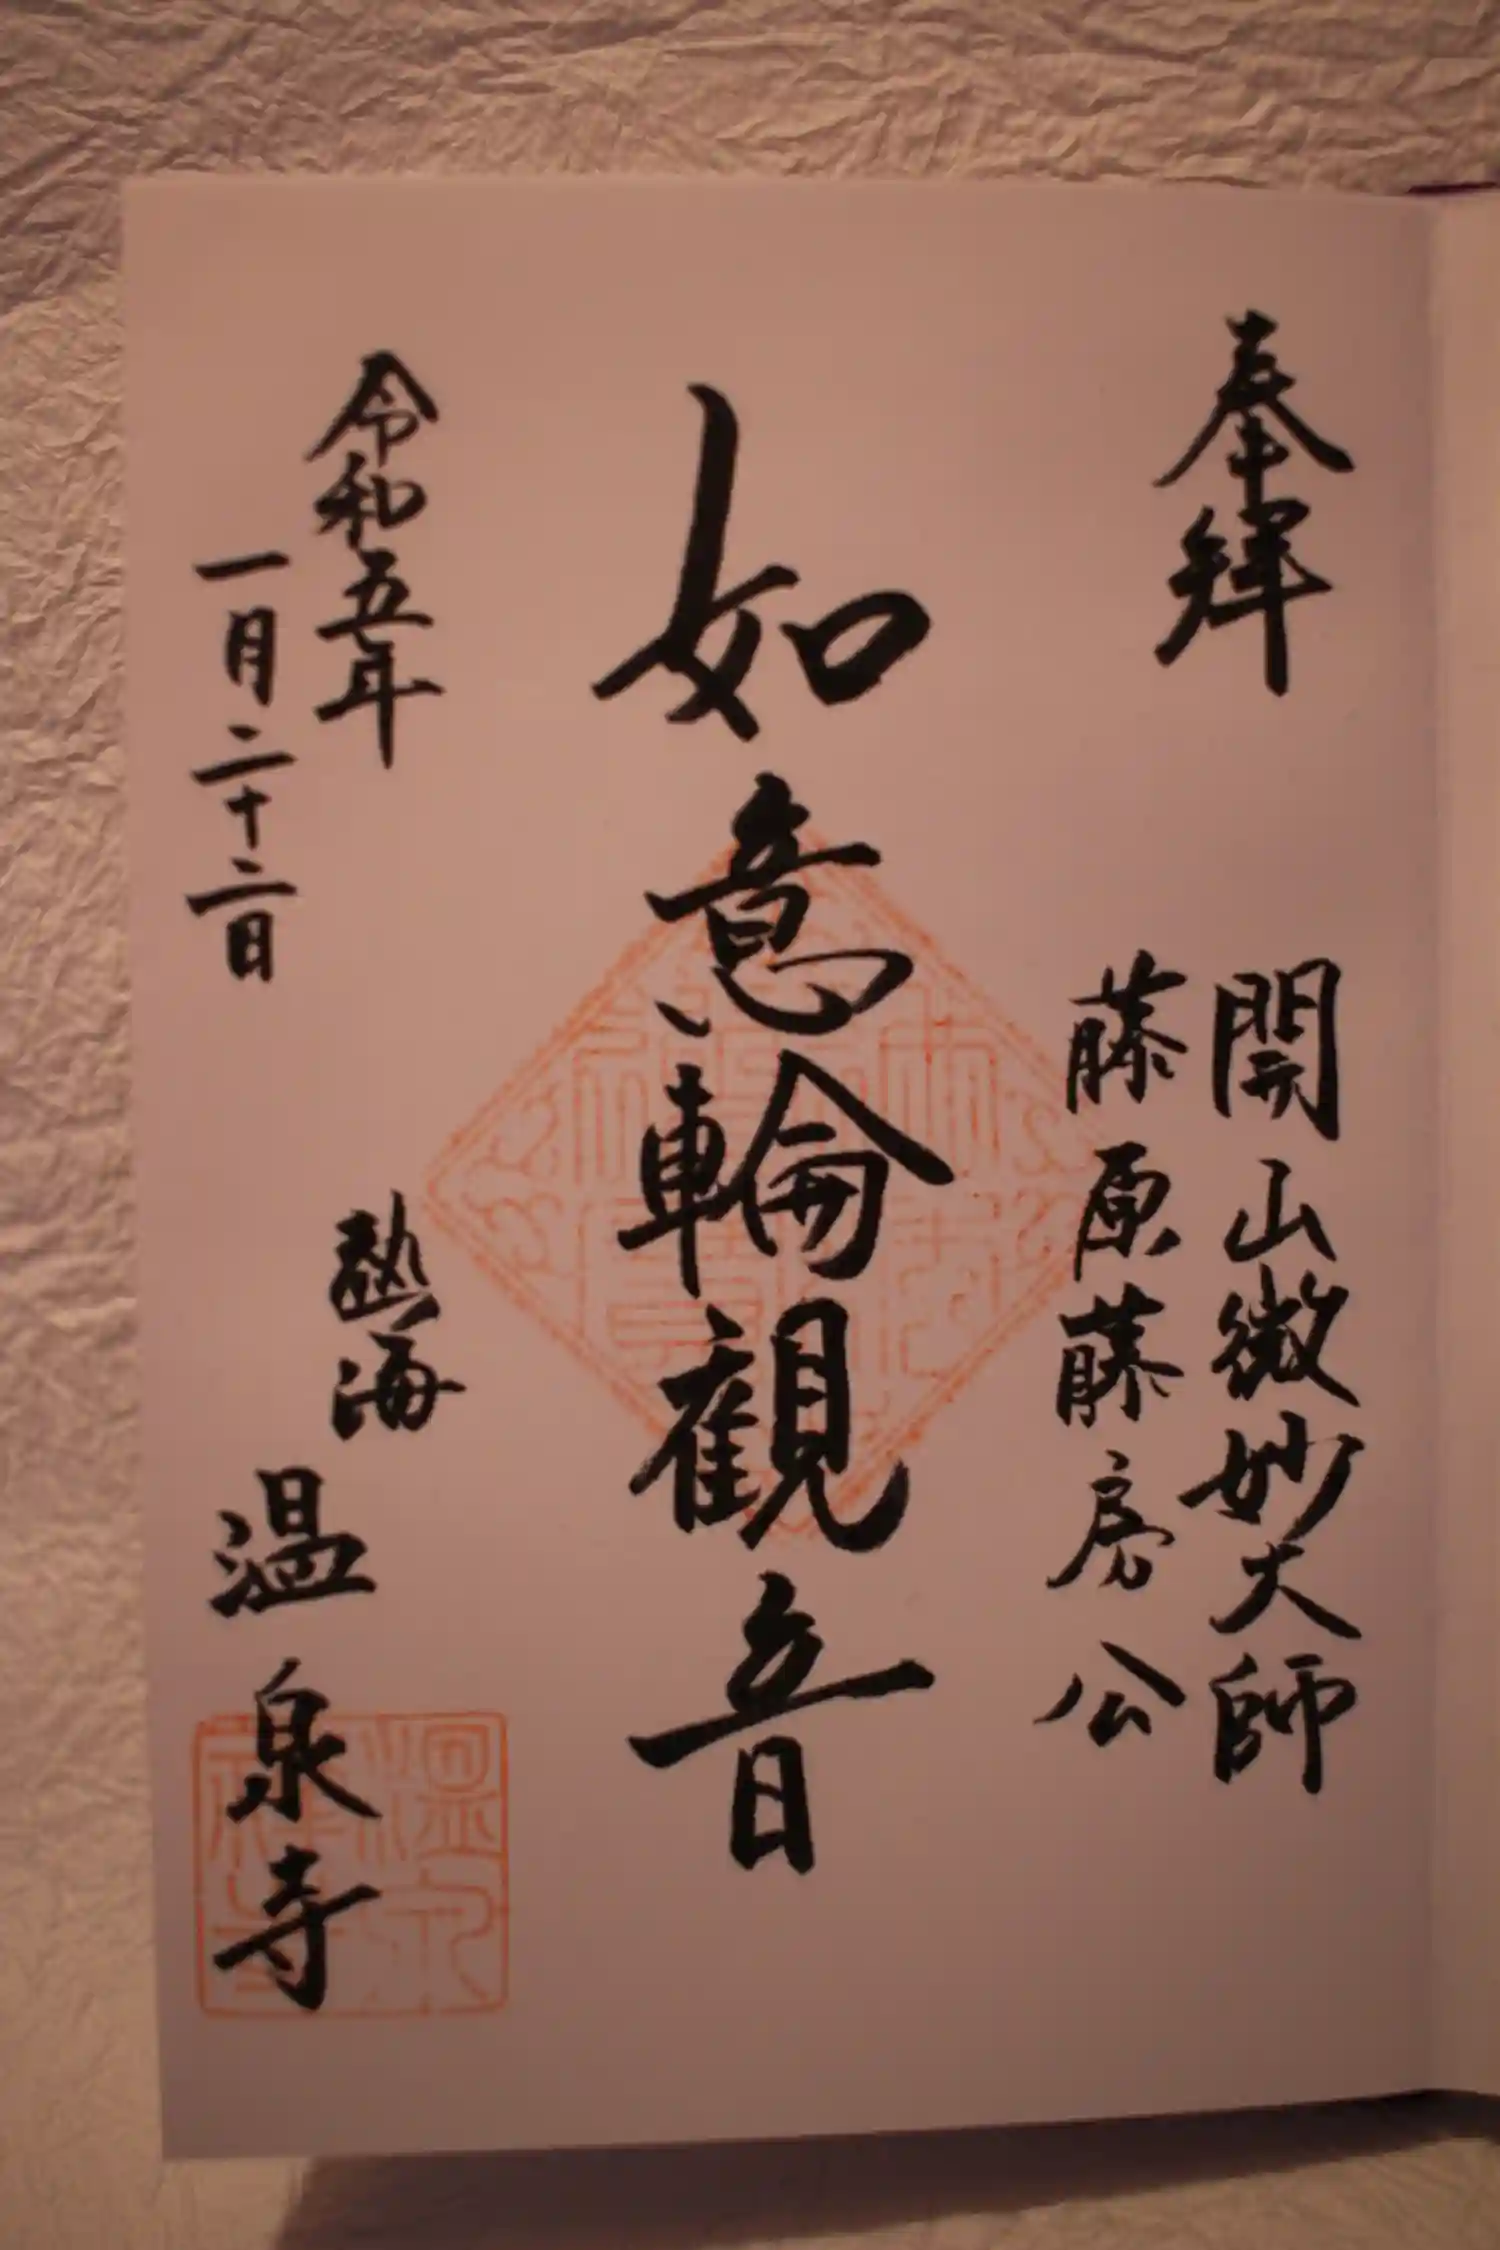 奉拝
開山微妙大師
藤原藤房公
如意輪観音
令和五年
一月二十二日
熱海
温泉寺